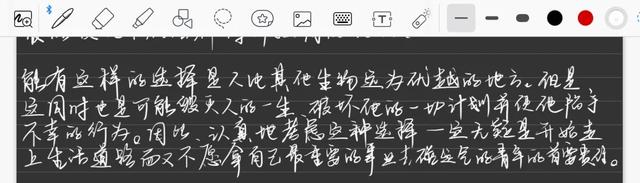 能有这样的选择是人比其他生物远为优越的地方。但是
这同时也是可能毁灭人的一生、破坏他的一切计划并使他陷于
不幸的行为。因此、认真地考虑这种选择一定无疑是开始走
上生活道路而又不愿拿自己最重要的事业去碰运气的青年的首要责任。